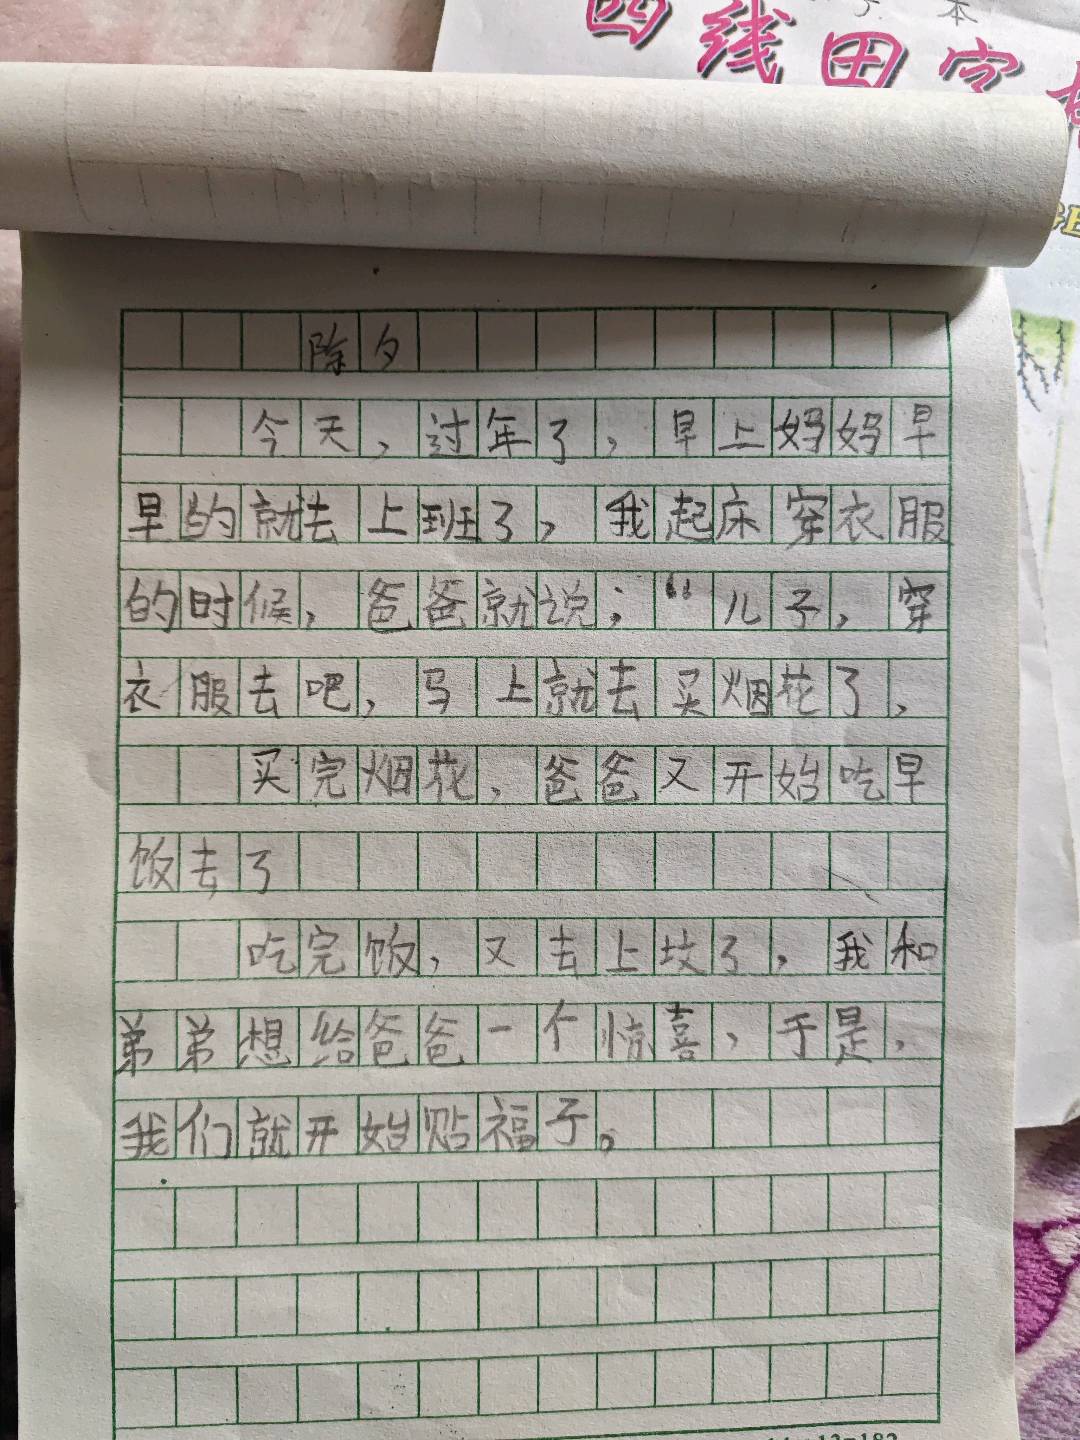 本
四线田字
除夕
今天，过年了，早上妈妈早
早的就去上班了，我起床穿衣服
的时候，爸爸就说；“儿子，穿
衣服去吧，马上就去买烟花了，
买完烟花，爸爸又开始吃早
饭去了
吃完饭，又去上坟了，我和
弟弟想给爸爸一个惊喜，于是，
我们就开始贴福子。